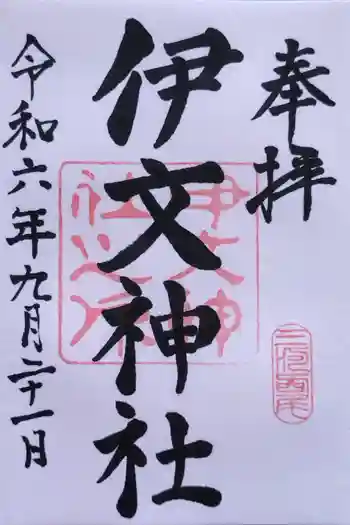 奉拝
伊文神社
令和六年九月二十一日